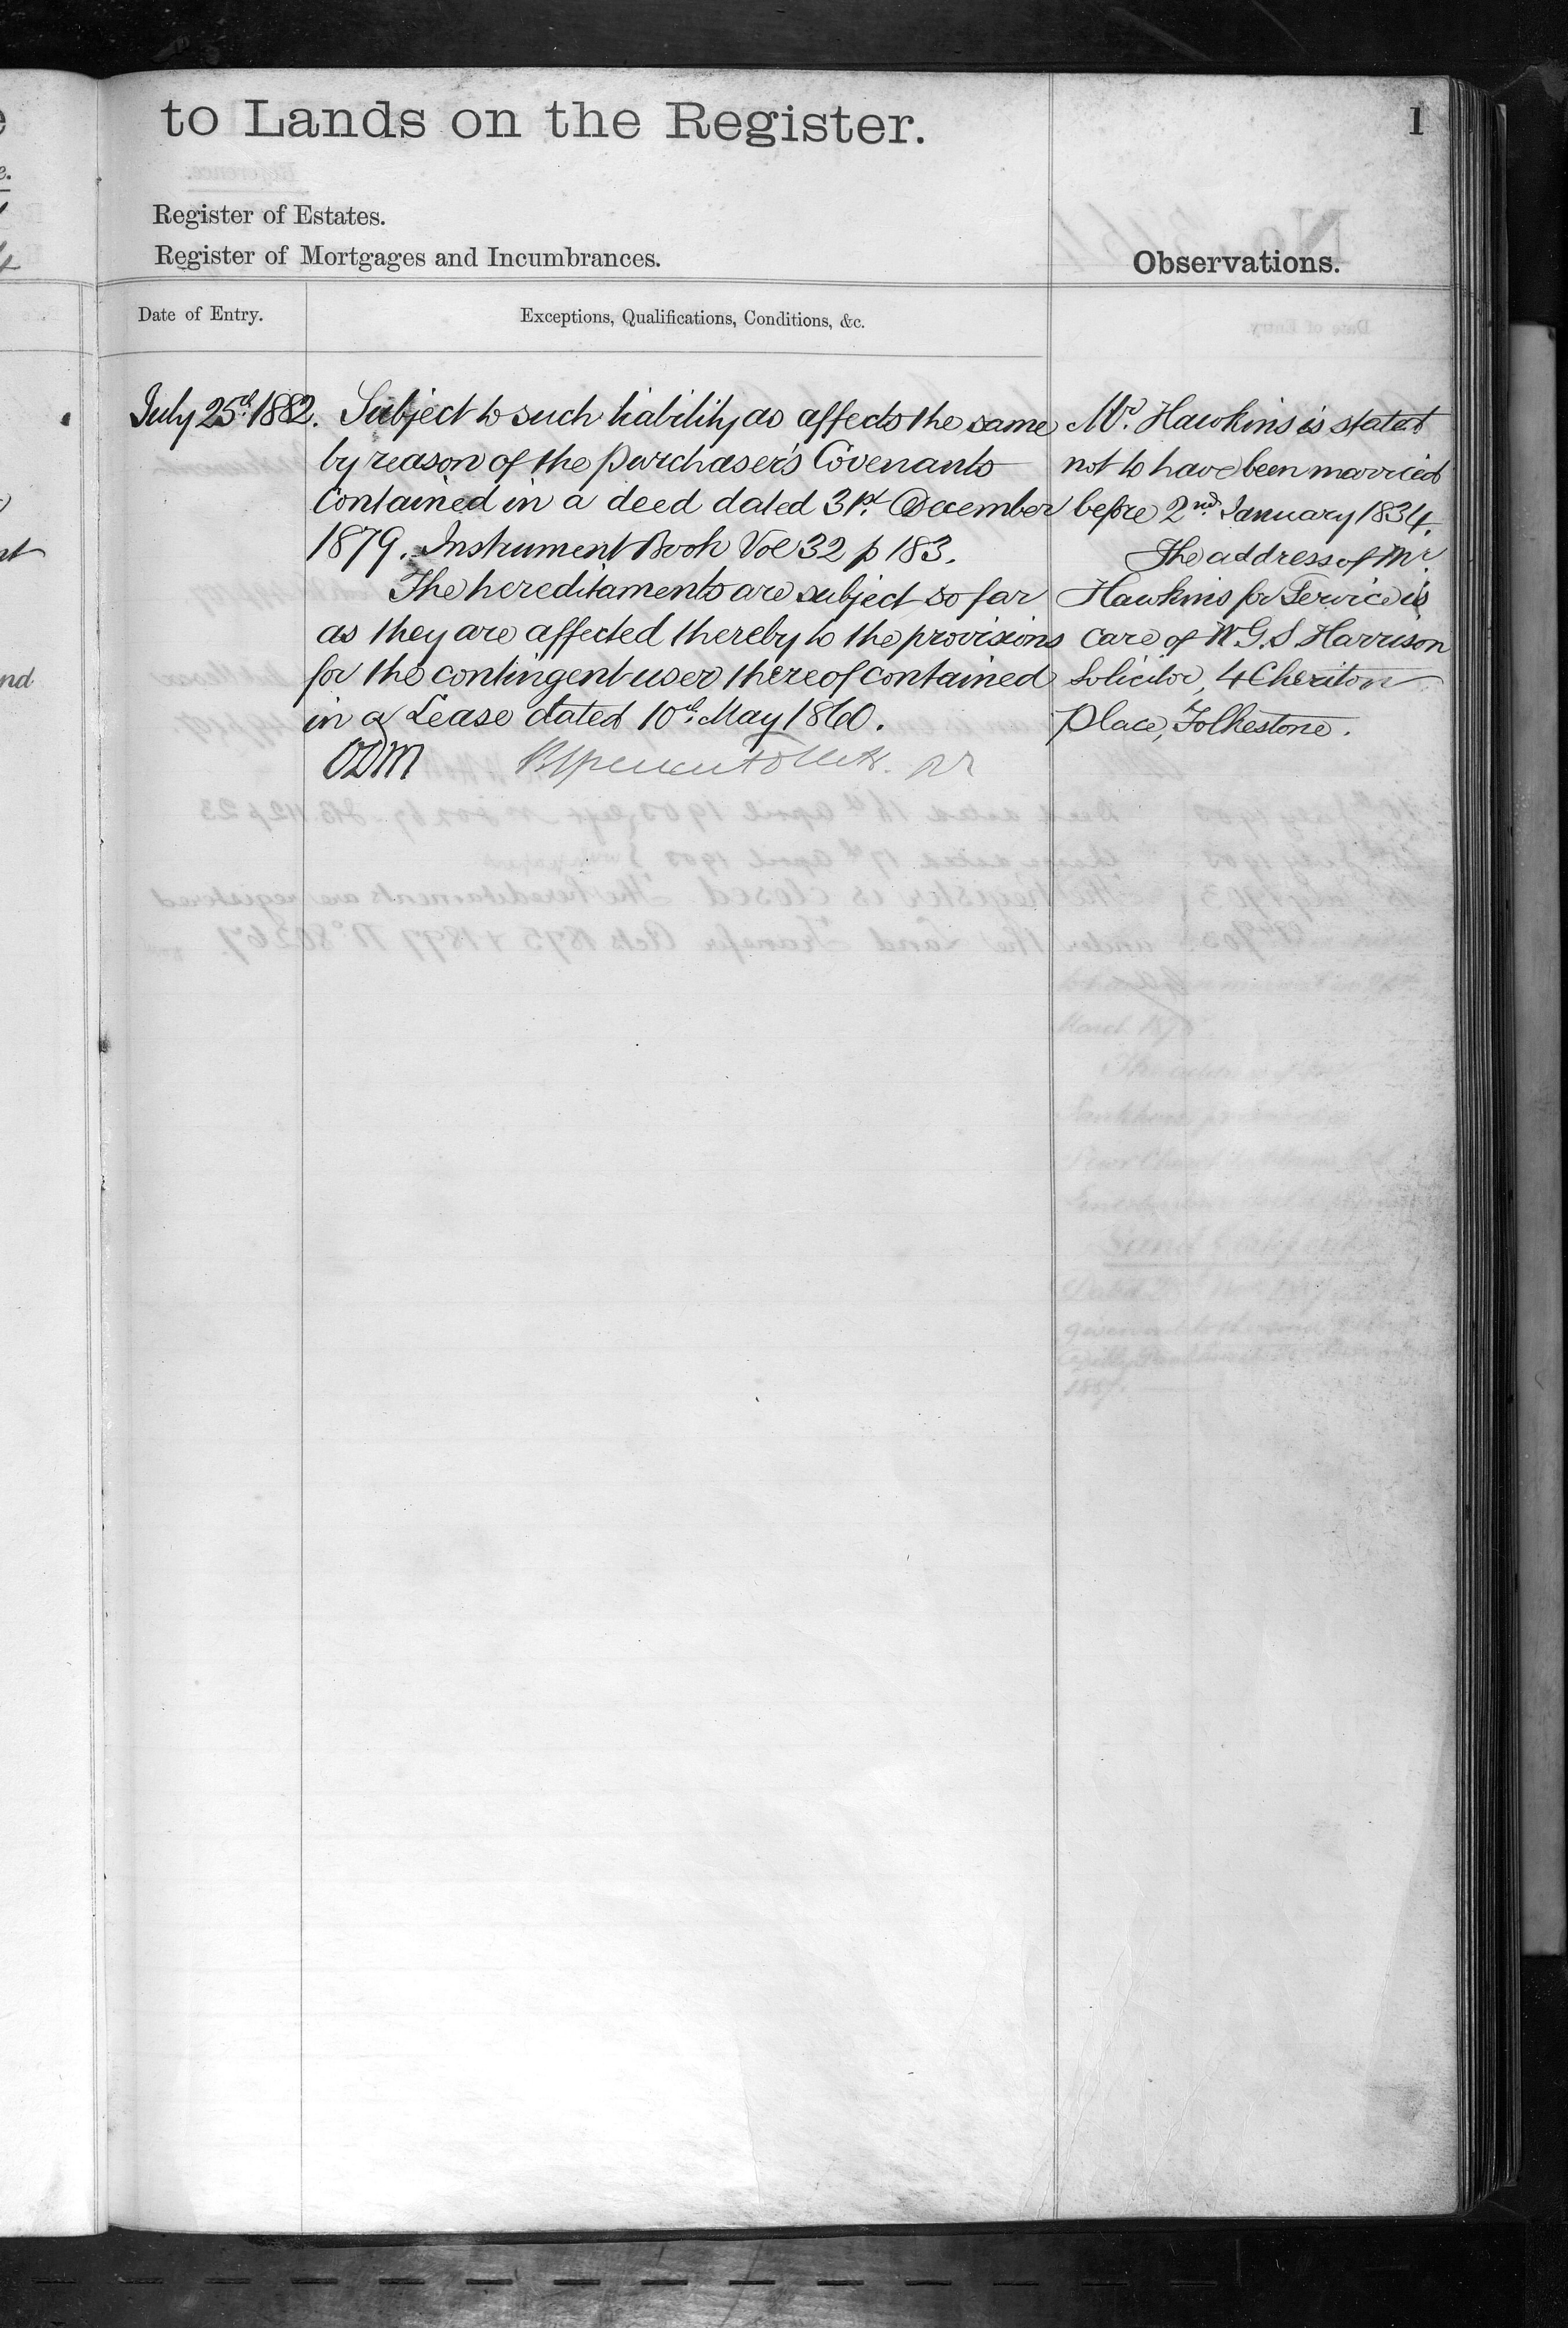 to Lands on the Register.
1
Register of Estates.
Register of Mortgages and Incumbrances.
Observations.
Date of Entry.
Exceptions, Qualifications, Conditions, &c.
July 25th 1882.
Subject to such liability as affects the same
by reason of the purchaser's Covenants
contained in a deed dated 31st December
1879. Instrument Book Vol 32 p 183.
The hereditaments are subject so far
as they are affected thereby to the provisions
for the contingent user thereof contained
in a Lease dated 10th May 1860.
ODM
Mr. Hawkins is stated
not to have been married
before 2nd January 1834.
The address of Mr.
Hawkins for Service is
care of W.G.S. Harrison
Solicitor, 4 Cheriton
Place, Folkestone.